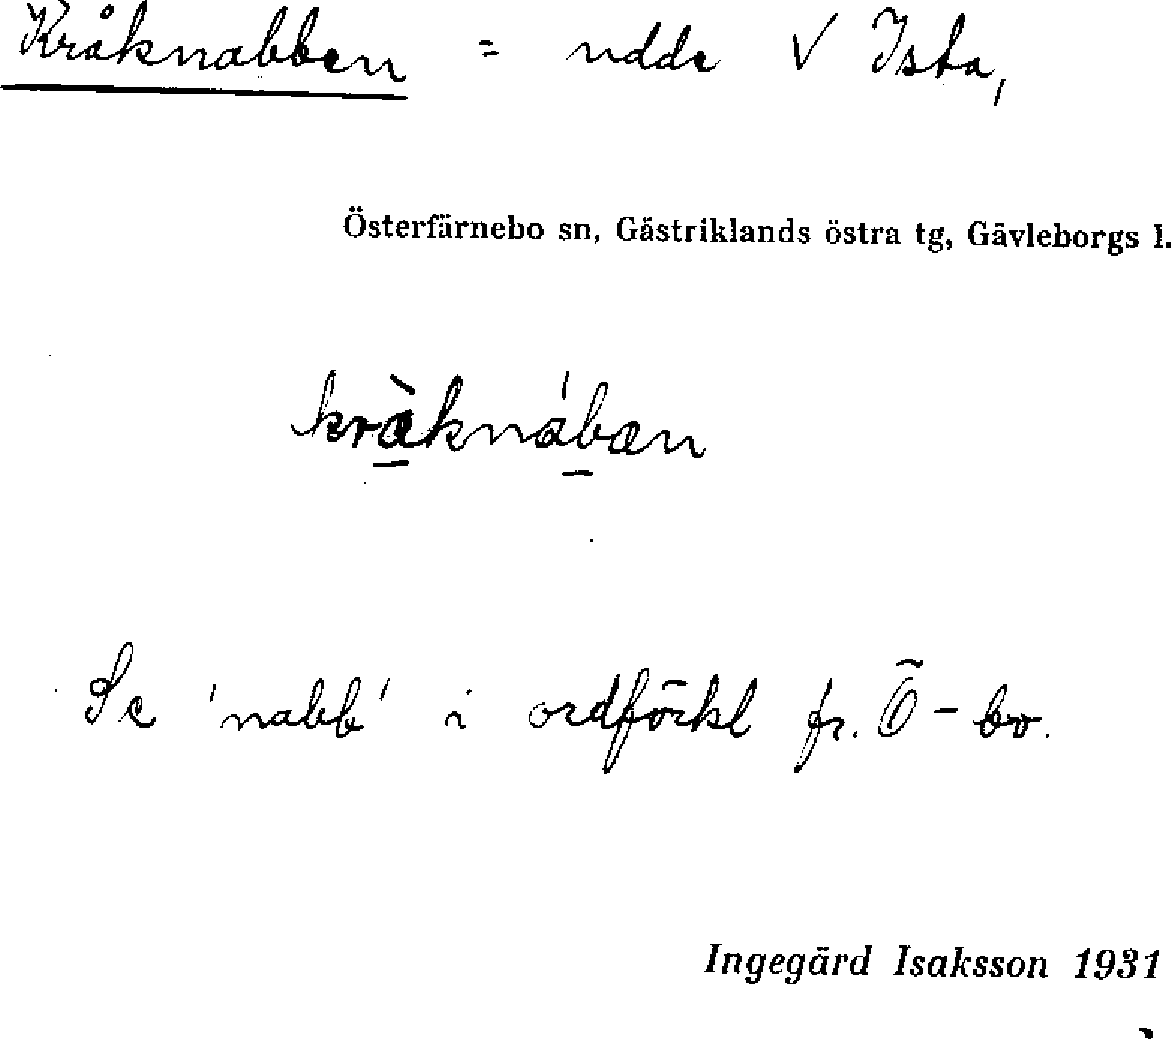 Kråknabben = udde V Ista,
Österfärnebo sn, Gästriklands östra tg, Gävleborgs l.
kràknában
Se 'nabb' i ordförkl fr. Ö-bo.
Ingegärd Isaksson 1931